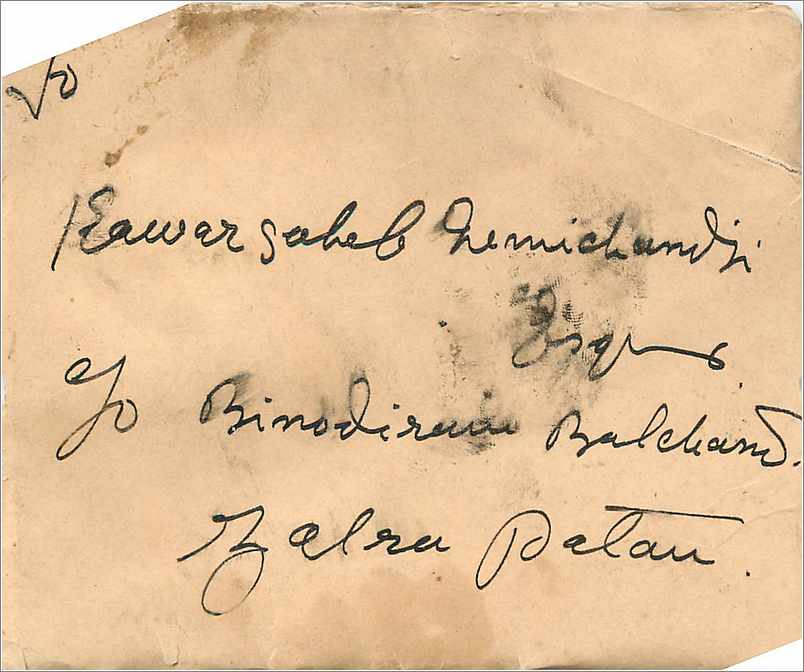 To
Kawar saheb Nemichandji
Esqr
C/o Binodiram Balchand.
Zalra Patan.